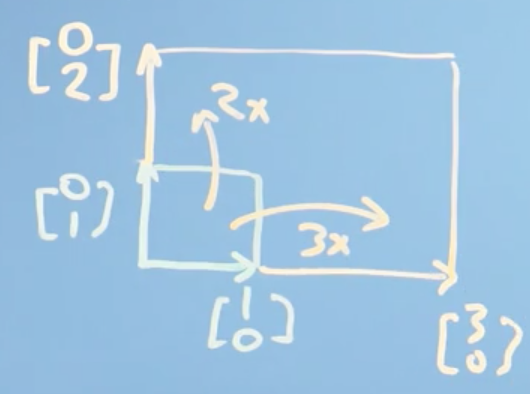 [0
2]
2x
[0
1]
3x
[1
0]
[3
0]